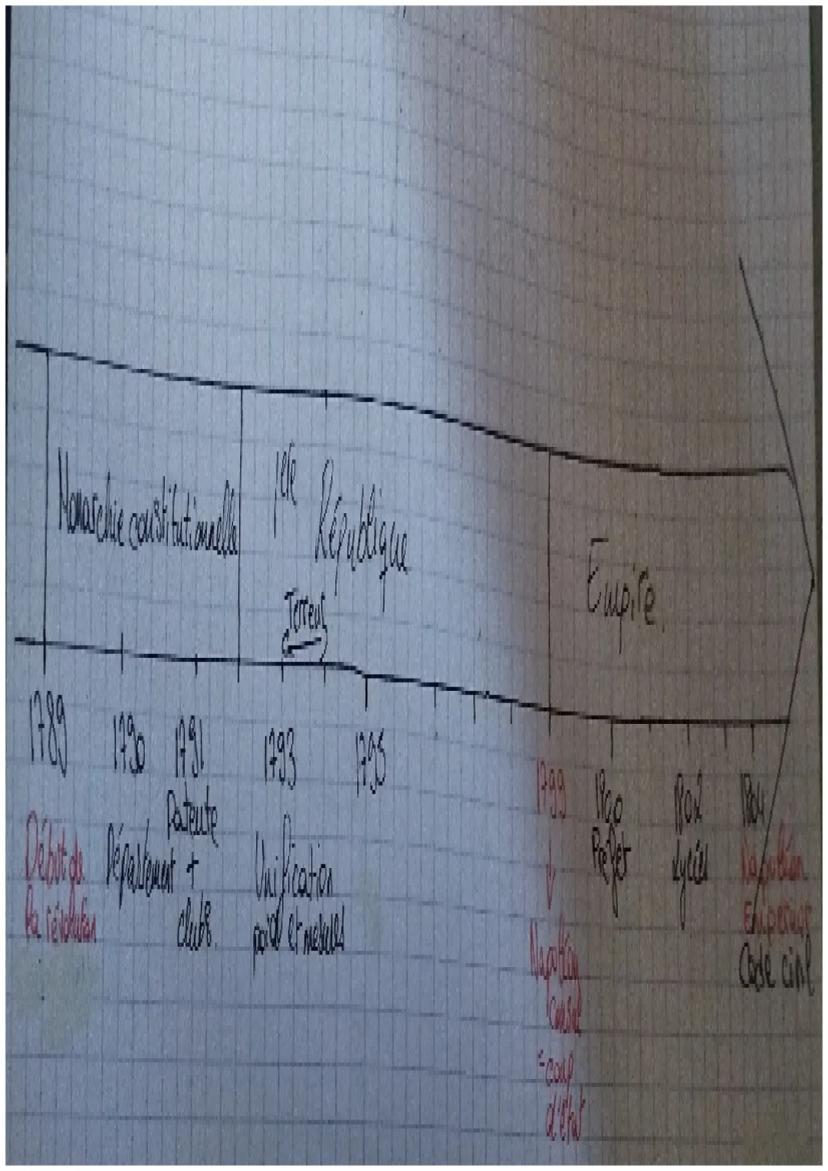 Monarchie constitutionnelle
1ère
République
Terreur
Empire
1789
1790
1791
1793
1795
1799
1800
1802
1804
Début de
la révolution
Département
Patente
+
clubs
Unification
poids et mesures
↓
Napoléon
Consul
=coup
d'état
Préfet
Lycées
Napoléon
Empereur
Code civil